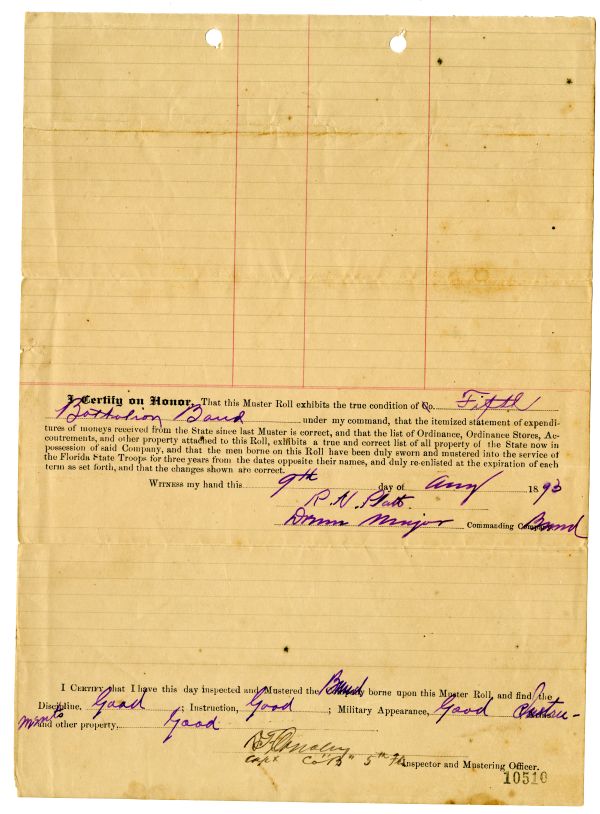 I Certify on Honor, That this Muster Roll exhibits the true condition of Co. Fifth
Battalion Band under my command, that the itemized statement of expendi-
tures of moneys received from the State since last Muster is correct, and that the list of Ordinance, Ordinance Stores, Ac-
coutrements, and other property attached to this Roll, exhibits a true and correct list of all property of the State now in
possession of said Company, and that the men borne on this Roll have been duly sworn and mustered into the service of
the Florida State Troops for three years from the dates opposite their names, and duly re-enlisted at the expiration of each
term as set forth, and that the changes shown are correct.
Witness my hand this 9th day of Aug 1893
R. N. Platt
Drum Major Commanding Company Band
I Certify that I have this day inspected and Mustered the Band borne upon this Muster Roll, and find the
Discipline, Good ; Instruction, Good ; Military Appearance, Good Instru-
ments and other property, Good
Capt Co "B" 5th
Inspector and Mustering Officer.
10510